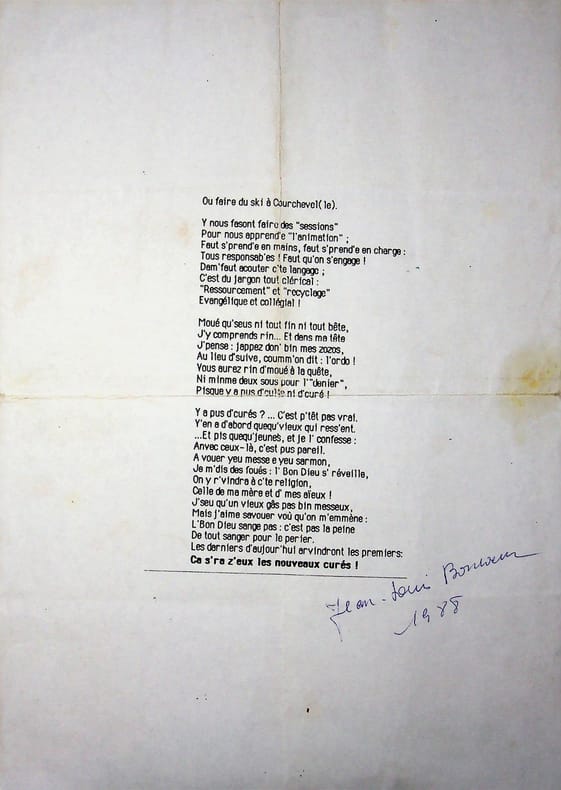 Ou faire du ski à Courchevel(le).
Y nous fasont faire des "sessions"
Pour nous apprend'e "l'animation" ;
Faut s'prend'e en mains, faut s'prend'e en charge :
Tous responsab'es ! Faut qu'on s'engage !
Dam'faut acouter c'te langage ;
C'est du jargon tout clérical :
"Ressourcement" et "recyclage"
Evangélique et collégial !
Moué qu'seus ni tout fin ni tout bête,
J'y comprends rin... Et dans ma tête
J'pense : jappez don' bin mes zozos,
Au lieu d'suive, coumm'on dit : l'ordo !
Vous aurez rin d'moué à la quête,
Ni minme deux sous pour l'"denier",
Pisque y a pus d'culte ni d'curé !
Y a pus d'curés ? ... C'est p'têt pas vrai.
Y'en a d'abord quequ'vieux qui ress'ent.
...Et pis quequ'jeunes, et je l' confesse :
Anvec ceux-là, c'est pus pareil.
A vouer yeu messe e yeu sarmon,
Je m'dis des foués : l' Bon Dieu s' réveille,
On y r'vindra à c'te religion,
Celle de ma mère et d' mes aïeux !
J'seu qu'un vieux gâs pas bin messeux,
Mais j'aime savouer voù qu'on m'emmène :
L'Bon Dieu sange pas : c'est pas la peine
De tout sanger pour le perier.
Les derniers d'aujourd'hui arvindront les premiers:
Ca s'ra z'eux les nouveaux curés !
Jean-Louis
1988